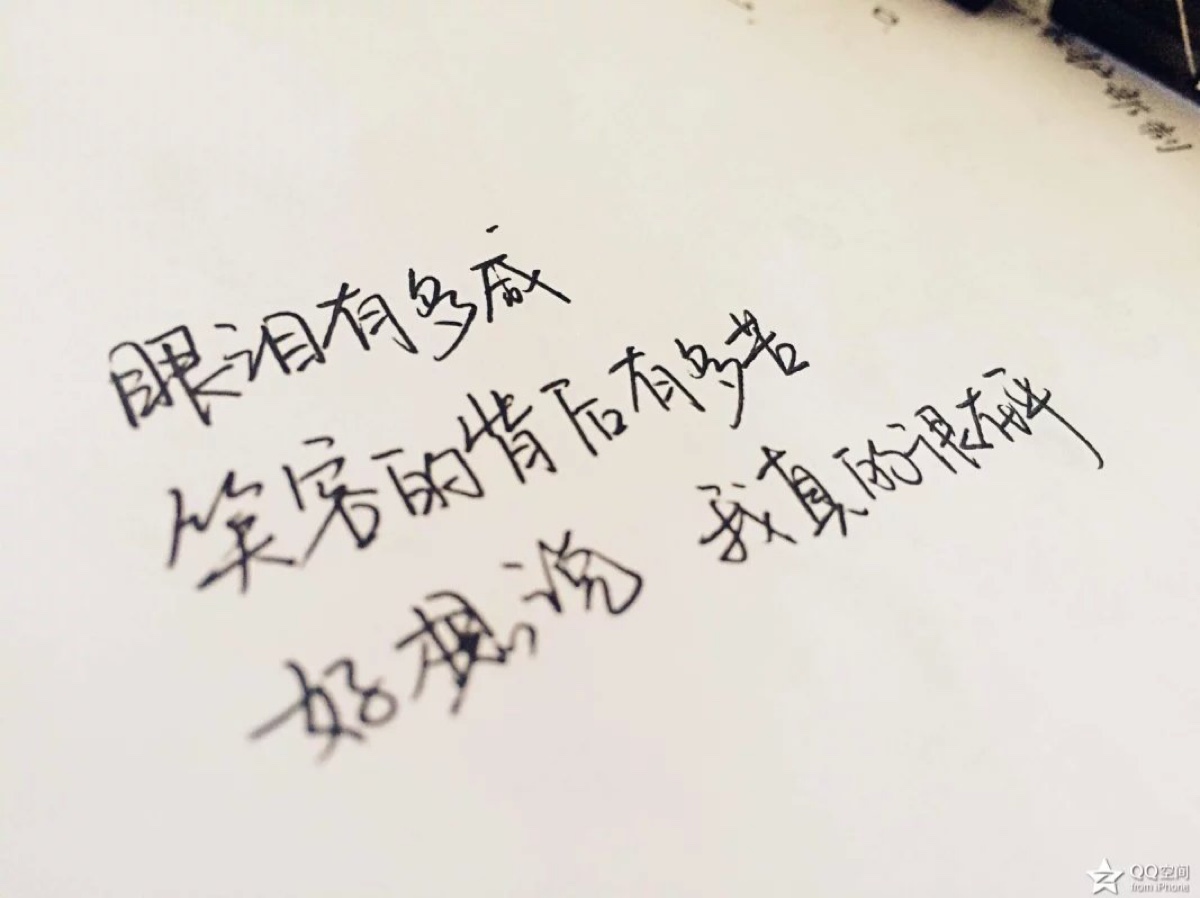 眼泪有多咸
笑容的背后有多苦
好想说 我真的很在乎
QQ空间
from iPhone